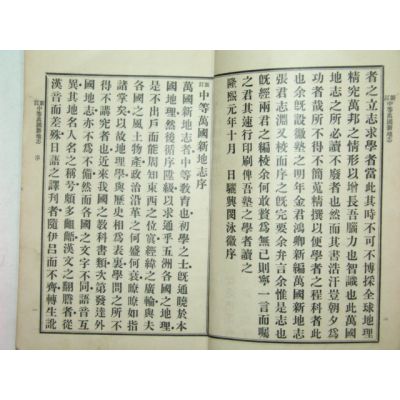 新訂中等萬國新地志
者之立志求學者當此其時不可不博採全球地理
精究萬邦之情形以增長吾腦力也智識也此萬國
地志之所必讀不廢者也然而其書浩汗豈朝夕爲
功者哉所不得不簡蒐精撰以便學者之程科者此
也余旣設徽塾之明年金君鴻卿新編萬國新地志
張君志淵又校而序之旣完要余弁言余惟是志也
旣經兩君之編校余何敢贅爲無已則寧一言而囑
之曰其速行印刷俾吾塾之學者讀之
隆熙元年十月 日驪興閔泳徽序
新訂中等萬國新地志序
萬國新地志者中等教育也初學之士旣通曉於本
國地理然後循序陞級以求通乎五洲各國之地理
是不出戶而能周知東西之位寘經緯之廣輪與夫
各國之風土物產政治沿革之何盛何衰瞭瞭如指
諸掌矣以故地理學與歷史相爲表裏學問之所不
得不講究者也近來我國之教科書類次第發達外
國地志亦不爲不備然而各國之文字不同語音互
異其地名人名之稱号頗多齟齬漢文之翻謄者從
漢音而差殊日語之譯刋者隨伊呂而不齊轉生訛
新訂中等萬國新地志 序